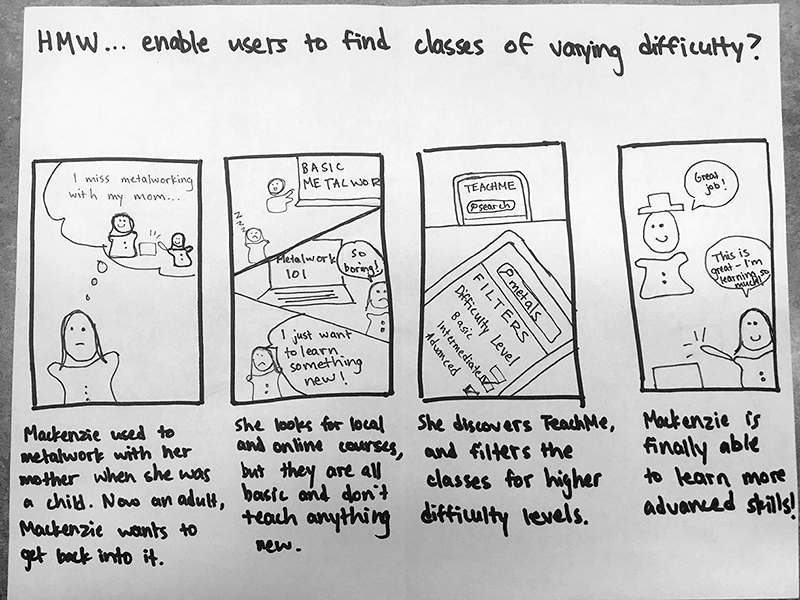 HMW... enable users to find classes of varying difficulty?
I miss metalworking
with my mom...
Mackenzie used to
metalwork with her
mother when she was
a child. Now an adult,
Mackenzie wants to
get back into it.
BASIC
METALWOR
zzz
Metalwork
101
So
boring!
I just want
to learn
something
new!
She looks for local
and online courses,
but they are all
basic and don't
teach anything
new.
TEACHME
search
metals
FILTERS
Difficulty Level
Basic
Intermediate
Advanced
She discovers TeachMe,
and filters the
classes for higher
difficulty levels.
Great
job!
This is
great - I'm
learning so
much!
Mackenzie is
finally able
to learn more
advanced skills!